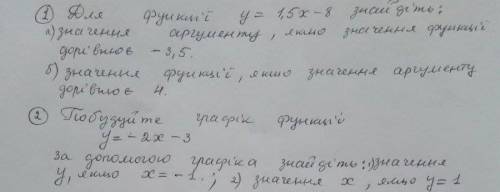 ① Для функції y = 1,5x - 8 знайдіть:
а) значення аргументу, якщо значення функції
дорівнює -3,5.
б) значення функції, якщо значення аргументу
дорівнює 4.
② Побудуйте графік функції
y = -2x - 3
За допомогою графіка знайдіть: 1) значення
y, якщо x = -1.; 2) значення x, якщо y = 1